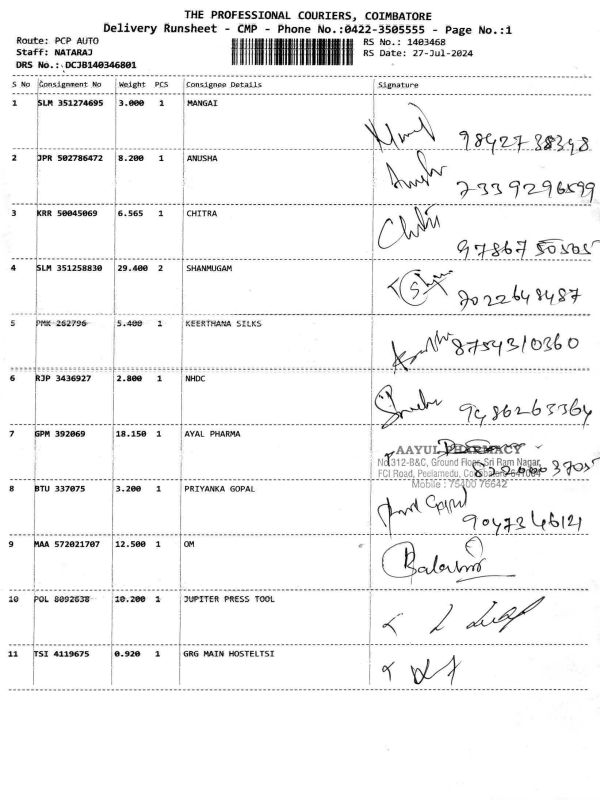 THE PROFESSIONAL COURIERS, COIMBATORE
Delivery Runsheet - CMP - Phone No.:0422-3505555 - Page No.:1
Route: PCP AUTO RS No.: 1403468
Staff: NATARAJ RS Date: 27-Jul-2024
DRS No.: DCJB140346801
S No Consignment No Weight PCS Consignee Details Signature
1 SLM 351274695 3.000 1 MANGAI
9842738398
2 JPR 502786472 8.200 1 ANUSHA
Anusha
7339296599
3 KRR 50045069 6.565 1 CHITRA
Chitra
9786750505
4 SLM 351258830 29.400 2 SHANMUGAM
7022648487
5 PMK 262796 5.400 1 KEERTHANA SILKS
8754310360
6 RJP 3436927 2.800 1 NHDC
9486263364
7 GPM 392069 18.150 1 AYAL PHARMACY
AAYUL PHARMACY
No.312-B&C, Ground Floor, Sri Ram Nagar,
FCI Road, Peelamedu, Coimbatore-641004
Mobile : 75400 76642
8 BTU 337075 3.200 1 PRIYANKA GOPAL
9047346121
9 MAA 572021707 12.500 1 OM
10 POL 8092638 10.200 1 JUPITER PRESS TOOL
11 TSI 4119675 0.920 1 GRG MAIN HOSTELTSI